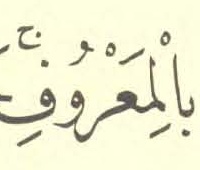 بِالْمَعْرُوْفِۚ